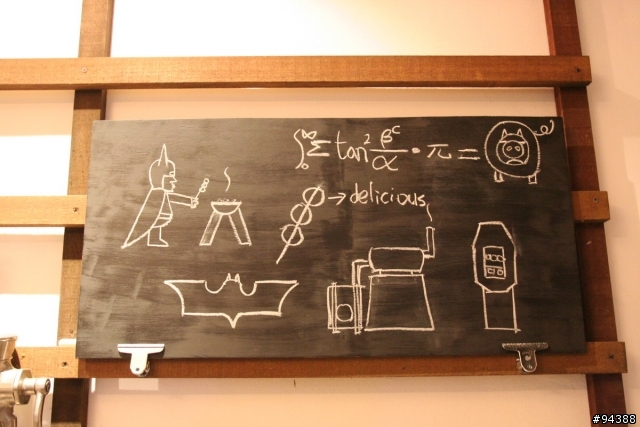 ∫₀^∞ Σ tan² β^c/α · π =
→ delicious
#94388